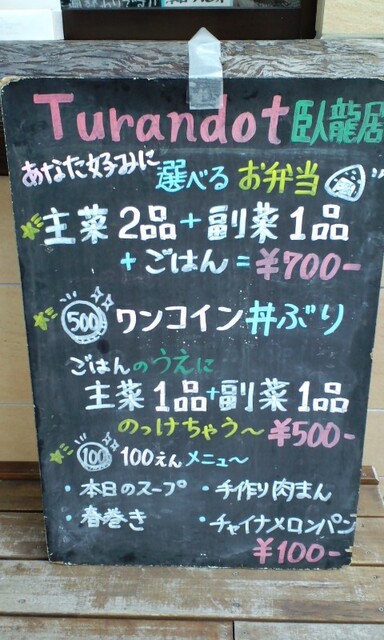 Turandot 臥龍居
あなた好みに 選べる お弁当
主菜2品+副菜1品
+ごはん=¥700-
500 ワンコイン丼ぶり
ごはんのうえに
主菜1品+副菜1品
のっけちゃう〜 ¥500-
100 100えんメニュ〜
・本日のスープ ・手作り肉まん
・春巻き ・チャイナメロンパン
¥100-